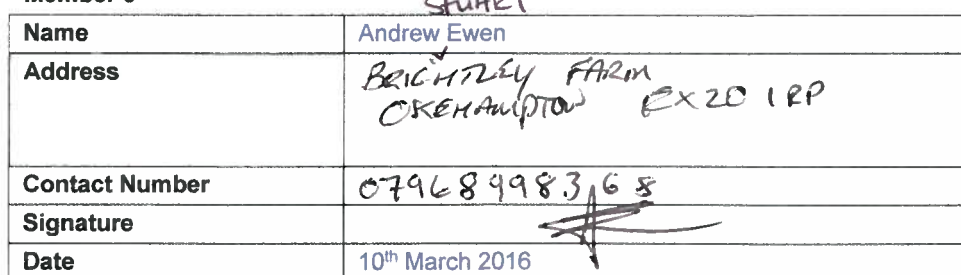 STUART
Name Andrew Ewen
Address BRIGHTLEY FARM
OKEHAMPTON EX20 1RP
Contact Number 07968998368
Signature
Date 10th March 2016